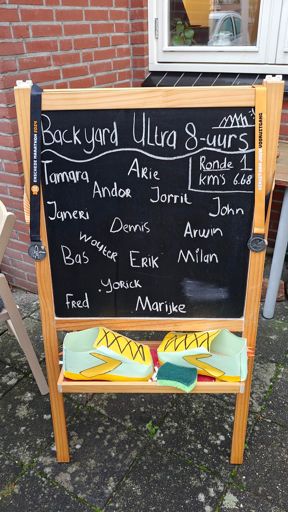 Backyard Ultra 8-uurs
Ronde 1
km's 6.68
Tamara Arie
Andor Jorrit
Janeri John
Dennis Arwin
Wouter
Bas Erik Milan
Yorick
Fred Marijke
ENSCHEDE MARATHON 2024
VOORUITGANG